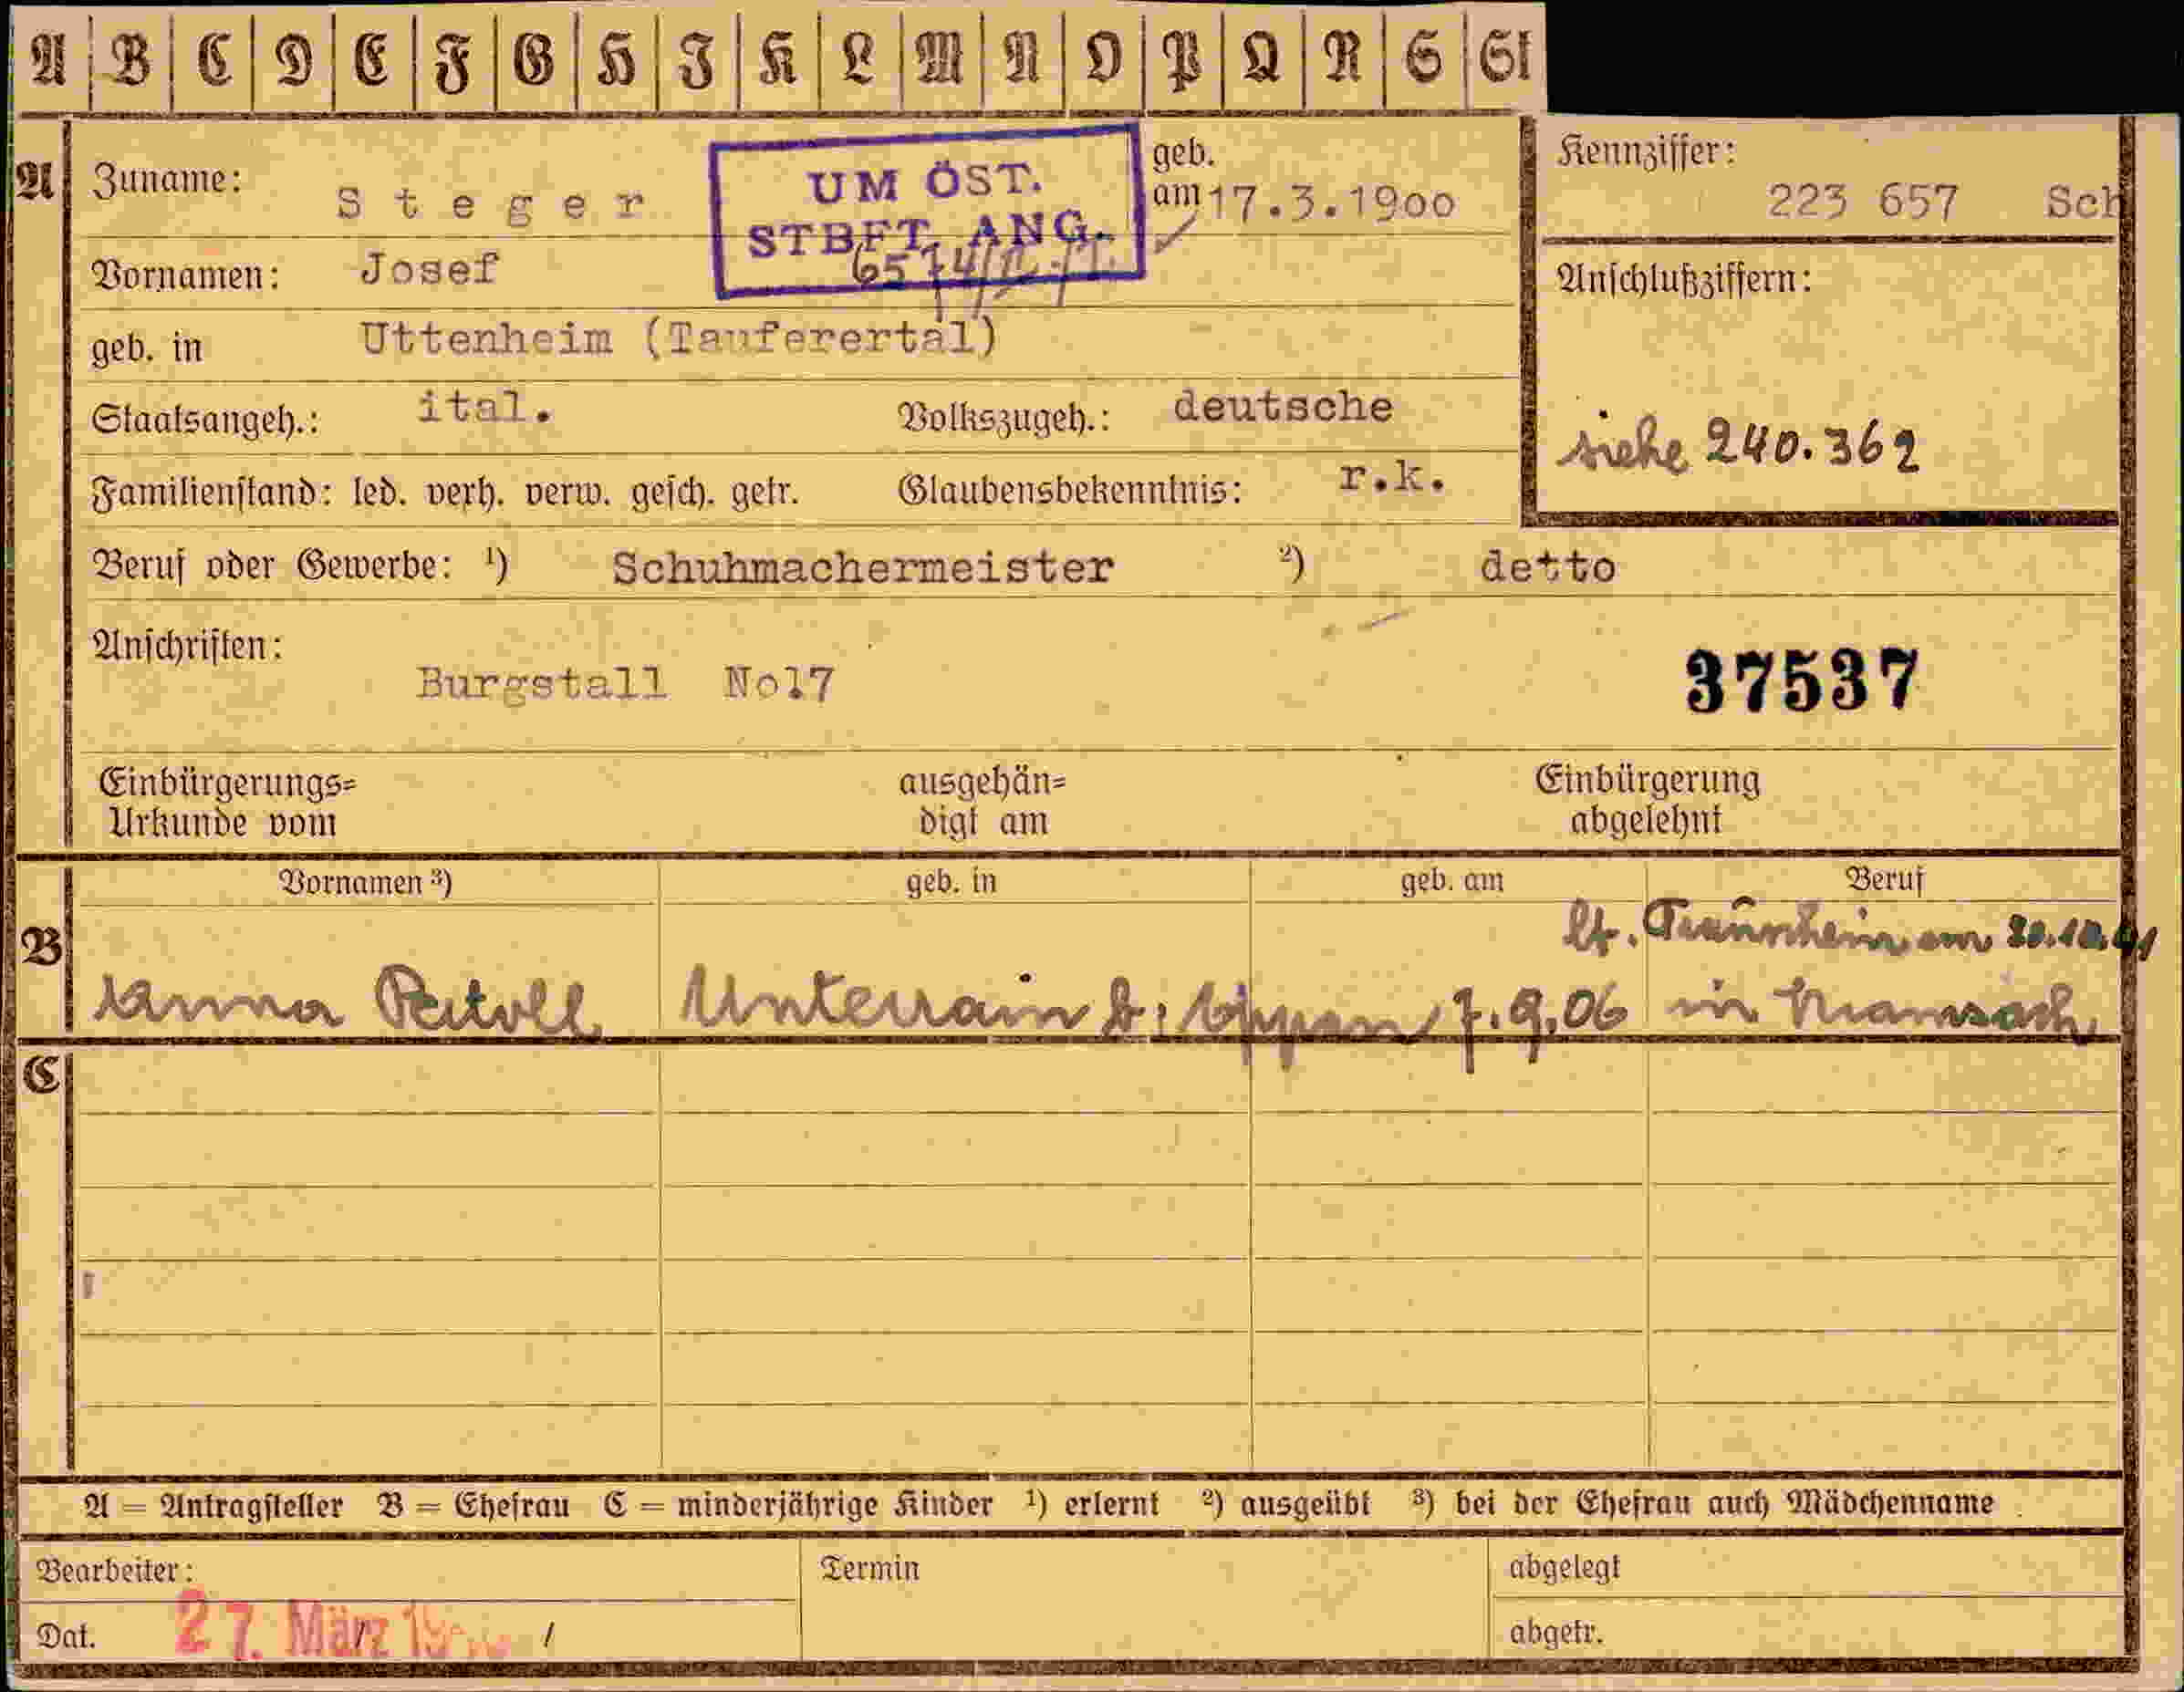 A B C D E F G H I K L M N O P Q R S St
A Zuname: Steger geb. am 17.3.1900
UM ÖST.
STBFT. ANG.
6574
Kennziffer:
223 657 Sch
Vornamen: Josef
Anschlußziffern:
geb. in Uttenheim (Tauferertal)
Staatsangeh.: ital. Volkszugeh.: deutsche
siehe 240.362
Familienstand: led. verh. verw. gesch. getr. Glaubensbekenntnis: r.k.
Beruf oder Gewerbe: ¹) Schuhmachermeister ²) detto
Anschriften:
Burgstall No17
37537
Einbürgerungs= ausgehän= Einbürgerung
Urkunde vom digt am abgelehnt
Vornamen ³) geb. in geb. am Beruf
B
lt. Trauschein am
Anna Unterrain b. Eppan 7.9.06 in
C
A = Antragsteller B = Ehefrau C = minderjährige Kinder ¹) erlernt ²) ausgeübt ³) bei der Ehefrau auch Mädchenname
Bearbeiter: Termin abgelegt
Dat. 27. März abgetr.